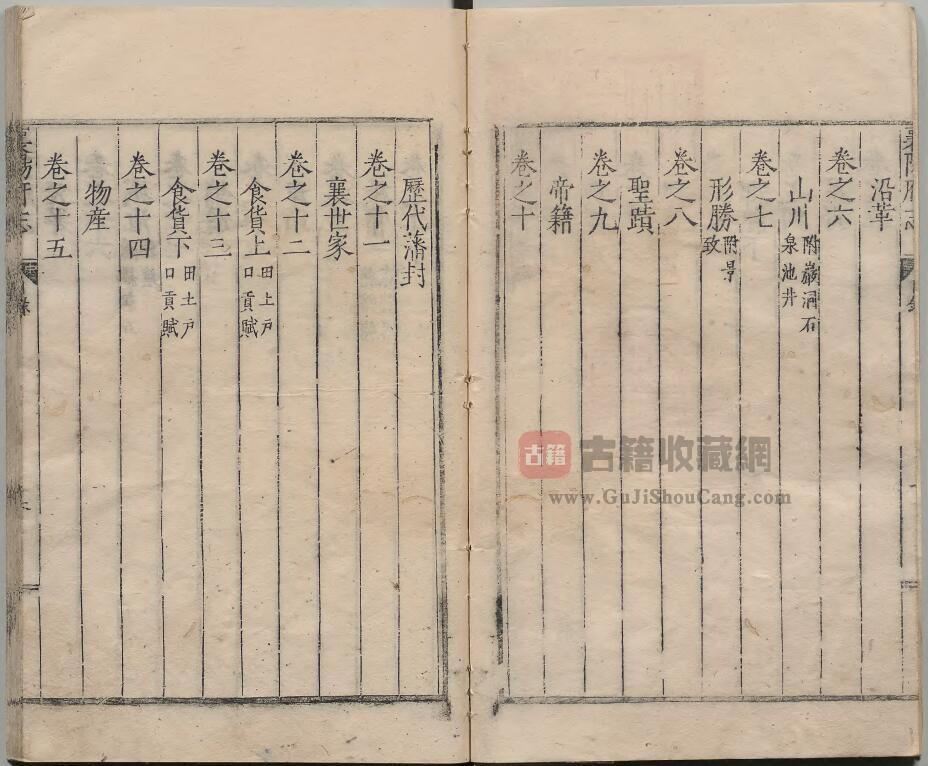 沿革
卷之六
山川 附巖洞石泉池井
卷之七
形勝 附景致
卷之八
聖蹟
卷之九
帝籍
卷之十
歷代藩封
卷之十一
襄世家
卷之十二
食貨上 田土戶口貢賦
卷之十三
食貨下 田土戶口貢賦
卷之十四
物產
卷之十五
襄陽府志
古籍
古籍收藏網
www.GuJiShouCang.com